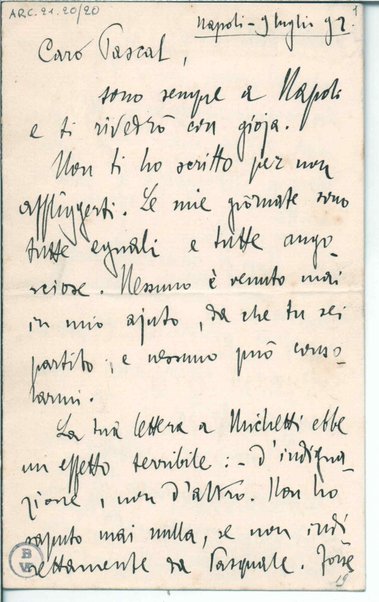 ARC.21.20/20
Napoli - 9 luglio 92.
1
Caro Pascal,
sono sempre a Napoli
e ti rivedrò con gioja.
Non ti ho scritto per non
affliggerti. Le mie giornate sono
tutte eguali e tutte ango-
sciose. Nessuno è venuto mai
in mio ajuto, da che tu sei
partito, e nessuno può conso-
larmi.
La tua lettera a Michetti ebbe
un effetto terribile: - d'indigna-
zione, non d'altro. Non ho
saputo mai nulla, se non indi
rettamente da Pasquale. Forse